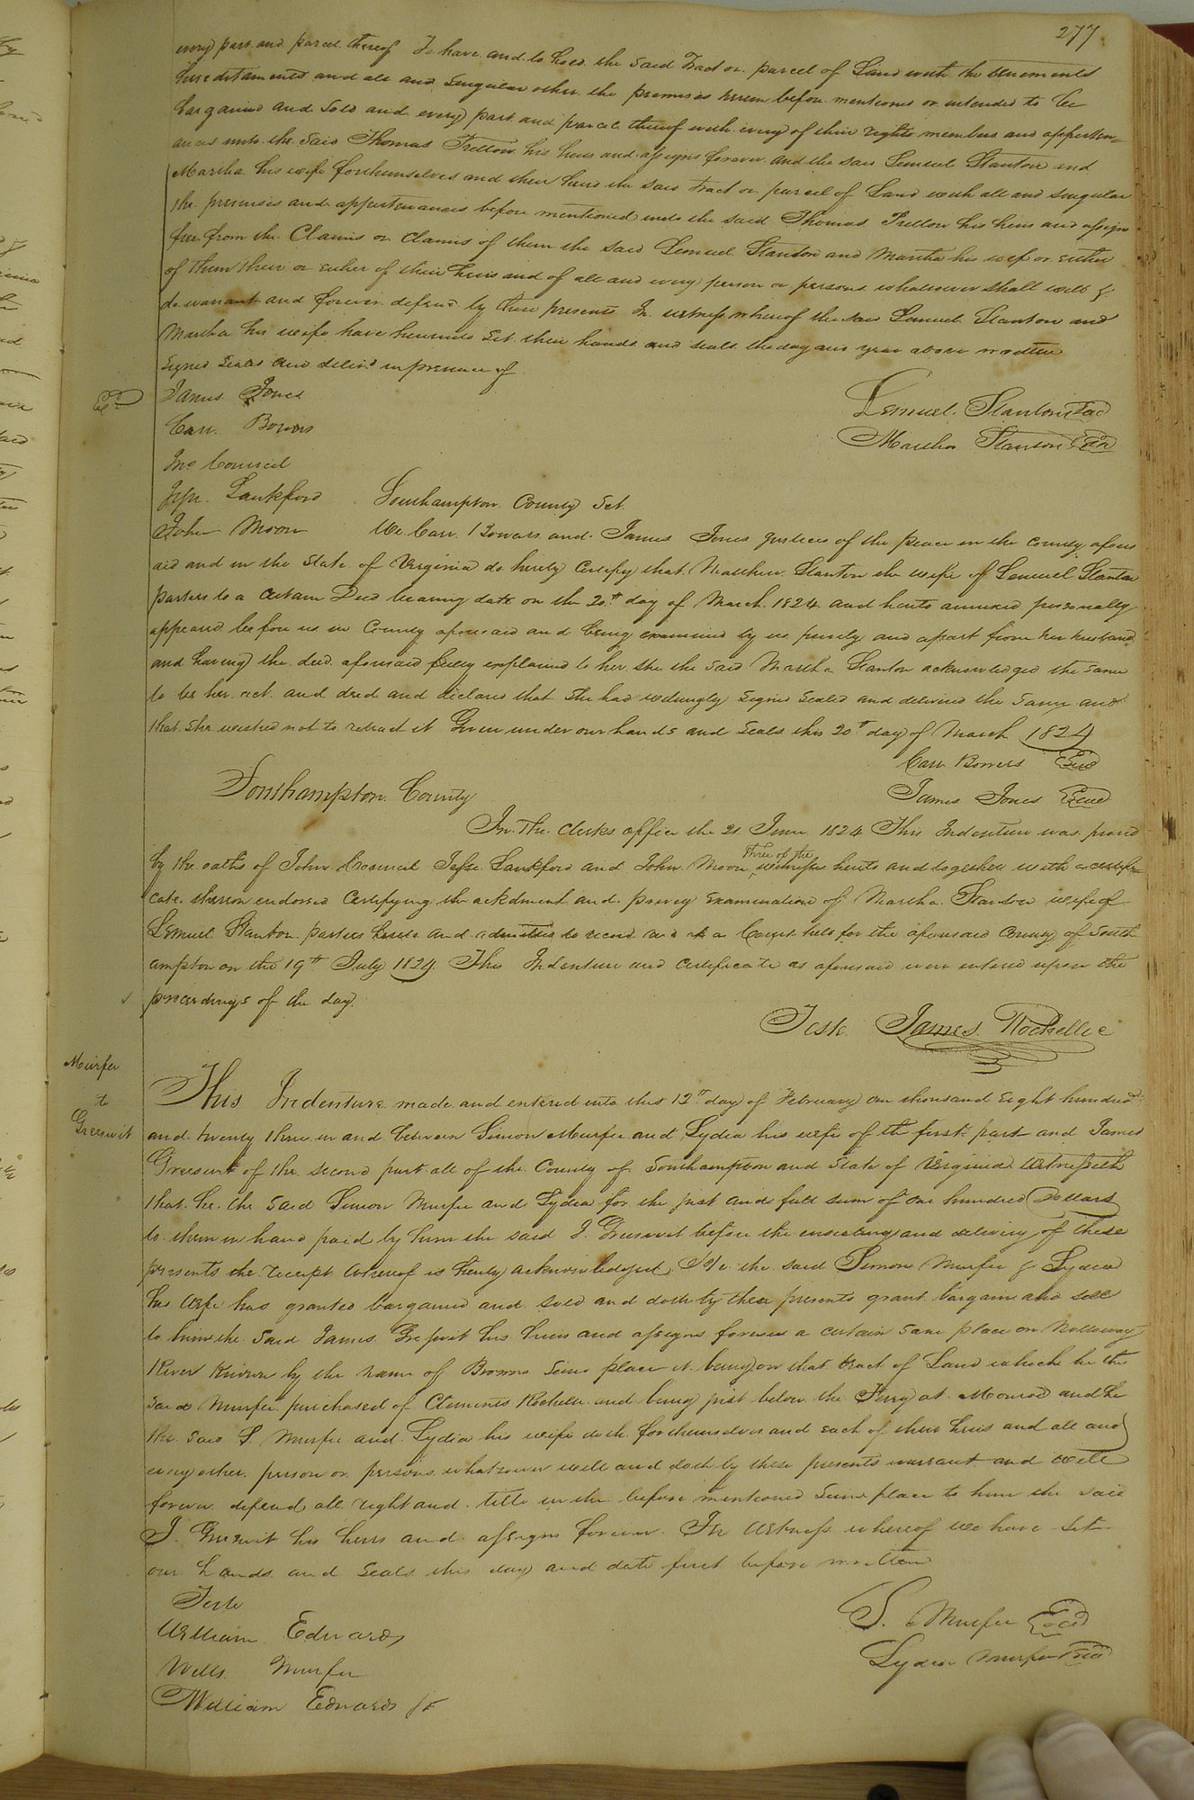 277
every part and parcel thereof To have and to hold the said Tract or parcel of Land with the tenements
hereditaments and all and singular other the premises herein before mentioned or intended to be
bargained and Sold and every part and parcel thereof with every of their rights members and appurten-
ances unto the said Thomas Pretlow his heirs and assigns forever and the said Lemuel Stanton and
Martha his wife for themselves and their heirs the said tract or parcel of Land with all and singular
the premises and appurtenances before mentioned unto the said Thomas Pretlow his heirs and assigns
free from the Claims or Claims of them the said Lemuel Stanton and Martha his wife or either
of them their or either of their heirs and of all and every person or persons whatsoever shall will &
do warrant and forever defend by these presents In witness whereof the said Lemuel Stanton and
Martha his wife have hereunto Set their hands and seals the day and year above written
Signed Seald and delivd in presence of
James Jones
Lemuel Stanton Seal
Carr Bowers
Martha Stanton Seal
Jno Council
Jesse Lankford Southampton County Sct
John Moon We Carr Bowers and James Jones Justices of the peace in the County afores
aid and in the State of Virginia do hereby Certify that Martha Stanton the wife of Lemuel Stanton
parties to a certain Deed bearing date on the 20th day of March 1824 and hereto annexed personally
appeared before us in County aforesaid and being examined by us privily and apart from her husband
and having the deed aforesaid fully explained to her she the said Martha Stanton acknowledged the same
to be her act and deed and declared that she had willingly Signed Sealed and delivered the same and
that she wished not to retract it Given under our hands and Seals this 20th day of March 1824
Carr Bowers Seal
Southampton County
James Jones Seal
In The Clerks office the 21 June 1824 This Indenture was proved
by the oaths of John Council Jesse Lankford and John Moon three of the witnesses hereto and together with a certifi
cate thereon endorsed Certifying the ackdment and privy Examination of Martha Stanton wife of
Lemuel Stanton parties hereto and admitted to record and at a Court held for the aforesaid County of South
ampton on the 19th July 1824 This Indenture and certificate as aforesaid were entered upon the
proceedings of the day.
Teste James Rochelle
Murfee
to
Gresswit
This Indenture made and entered into this 12th day of February one thousand Eight hundred
and twenty three in and between Simon Murfee and Lydia his wife of the first part and James
Gresswit of the second part all of the County of Southampton and State of Virginia Witnesseth
that he the said Simon Murfee and Lydia for the just and full sum of one hundred Dollars
to them in hand paid by him the said J. Gresswit before the ensealing and delivery of these
presents the receipt whereof is hereby acknowledged We the said Simon Murfee & Lydia
his wife has granted bargained and sold and doth by these presents grant bargain and sell
to him the Said James Gresswit his heirs and assigns forever a certain Sane place on Nottoway
River Known by the name of Browns Seine place it being on that tract of Land which he the
said Murfee purchased of Clements Rochelle and being just below the Ferry at Monroe and he
the said S Murfee and Lydia his wife doth for themselves and each of their heirs and all and
every other person or persons whatsoever will and doth by these presents warrant and will
forever defend all right and title in the before mentioned Seine place to him the said
J. Gresswit his heirs and assigns forever. In witness whereof we have Set
our hands and Seals this day and date first before written
Teste
S. Murfee Seal
William Edwards
Lydia Murfee Seal
Wells Murfee
William Edwards Jr